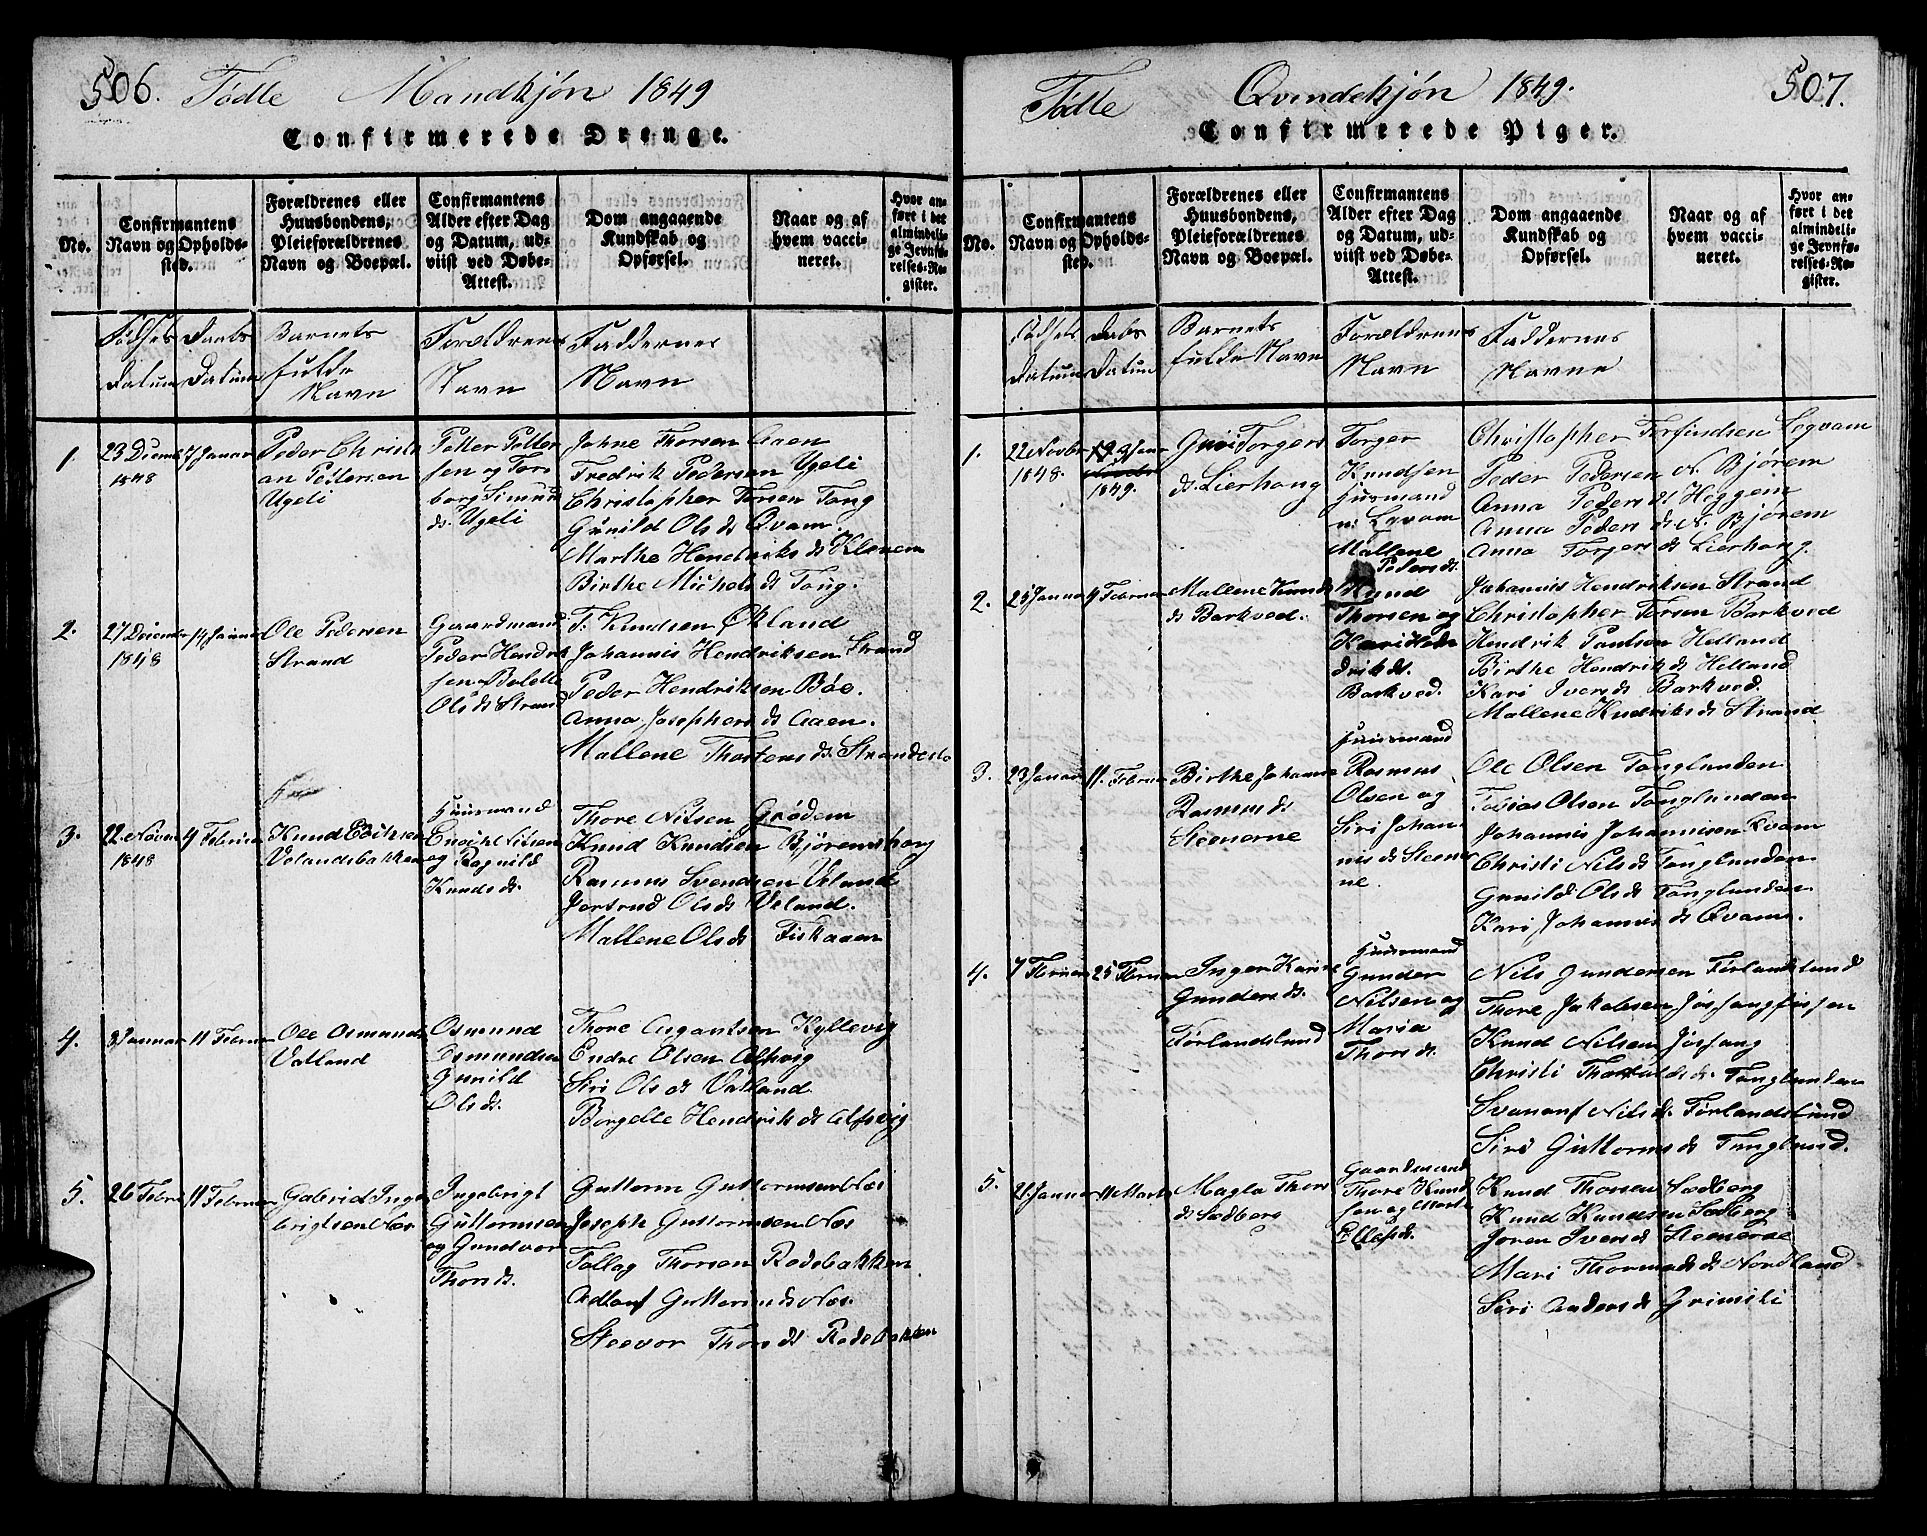 506. Fødte Mandkjøn 1849
Confirmerede Drenge.
No.
Confirmantens Navn og Opholdssted.
Forældrenes eller Huusbondens, Pleieforældrenes Navn og Boepæl.
Confirmantens Alder efter Dag og Datum, udviist ved Døbe-Attest.
Dom angaaende Kundskab og Opførsel.
Naar og af hvem vaccineret.
Hvor anført i det almindelige Jevnførelses-Register.
Fødsels Datum
Daabs Datum
Barnets fulde Navn
Forældrenes Navn
Faddernes Navn
1
23 Decmb 1848
7 Januar
Peder Christian Pettersen Ugeli
Petter Pettersen og Torborg Simunds. Ugeli
Johne Thorsen Aaen
Fredrik Pedersen Ugeli
Christopher Torsen Tong
Gunild Olsds Qvam
Marthe Hendriksds Klovnem
Birthe Michelsds Tong.
2.
27 Decemb 1848
14 Januar
Ole Pedersen Strand
Gaardmand
Peder Hendriksen Bolette
Olsds Strand
T. Knudsen Økland
Johannis Hendriksen Strand
Peder Hendriksen Bøe.
Anna Josephersds Aaen.
Mallene Thostensds. Strandesto
3.
22. Novem 1848
4 Februar
Knud Velandsbakken
Huusmand
og Ragnild
Knudsds.
Thore Nilsen Grødem
Knud Knudsen Bjøremshoug
Rasmus Svendsen Veland
Jortrud Olsds Veland.
Mallene Olsds Fiskaaen
4.
8 Januar
11 Februar
Ole Osmunds Vatland
Osmund
Osmundsen
Gunild
Olsds.
Thore Augantsen Kyllevig
Endre Olsen Alfsvig
Siri Olsds Vatland
Borgelle Hendriksds Alfsvig
5.
26 Febru
11 Februar
Gabriel Ingebrigtsen Næs
Ingebrigt
Guttormsen
og Gundvor
Thorsds.
Guttorm Guttormsen Næs
Joseph Guttormsen Næs
Tollag Thorsen Rødebakken
Adlauf Guttormsds Næs.
Steevor Thorsds Rødebakken
Fødte Qvindekjøn 1849. 507.
Confirmerede Piger.
No.
Confirmantens Navn og Opholdssted.
Forældrenes eller Huusbondens, Pleieforældrenes Navn og Boepæl.
Confirmantens Alder efter Dag og Datum, udviist ved Døbe-Attest.
Dom angaaende Kundskab og Opførsel.
Naar og af hvem vaccineret.
Hvor anført i det almindelige Jevnførelses-Register.
Fødsels Datum
Dabs Datum
Barnets fulde Navn
Forældrenes Navn
Faddernes Navne
1.
22 Novbr 1848.
Janr 1849.
Guri Torgersds. Lierhoug
Torger
Knudsen
Huusmand
Mallene
Pedersds.
Christopher Torfindsen Legvam
Peder Pedersen N. Bjørem
Anna Pedersdt Heggem
Anna Pedersds N. Bjørem
Anna Torgersds Lierhoug.
2.
25 Januar
4 Februar
Mallene Knudsds Barkved.
Knud
Thorsen og
Kari Hendriksds.
Barkved.
Johannis Hendriksen Strand
Christopher Torsen Barkved
Hendrik Paulsen Helland
Birthe Hendriksds Helland
Kari Iversds Barkved.
Mallene Hndriksds Strand
3.
23 Januar
11. Februar
Birthe Johanne Rasmusds Steenerne
Huusmand
Rasmus
Olsen og
Siri Johannisds Steenene.
Ole Olsen Tonglunden
Tobias Olsen Tonglunden
Johannis Johannisen Kvam
Christi Nilsds Tonglunden
Gunild Olsds Tonglunden
Kari Johannisds Qvam.
4.
7 Februar
25 Februar
Inger Karine Gundersds. Førlandslund
Huusmand
Gunder
Nilsen og
Maria
Thorsds.
Nils Gundersen Førlandslund
Thore Jakobsen Jøssangfossen
Knud Nilsen Jøssang
Christi Thorvildsds. Tonglunden
Svanauf Nilsds. Førlandslund
Siri Guttormsds Tonglund.
5.
21. Januar
11 Marts
Magla Thorsds Sædberg
Gaardmand
Thore Knudsen og Mart
Knud Thorsen Sædberg
Knud Knudsen Sædberg
Joren Iversds Steenerne
Mari Thormodsds Nordland
Siri Andersds Grimsli